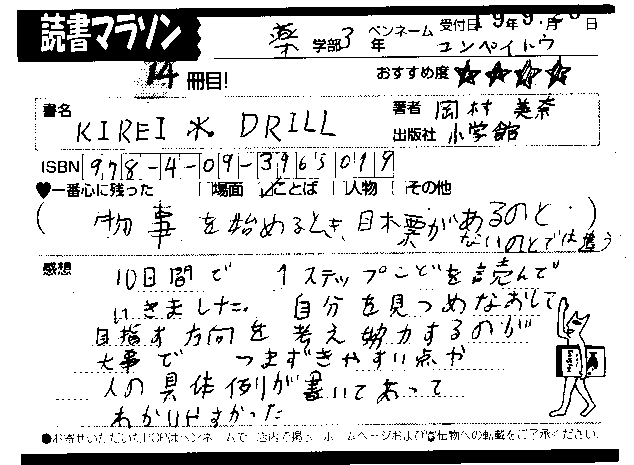 読書マラソン
薬 学部 3 年 ペンネーム コンペイトウ 受付日 19年9月20日
14冊目!
おすすめ度 ☆☆☆☆
書名 KIREI 水 DRILL
著者 岡村 美奈
出版社 小学館
ISBN 978-4-09-3965019
♥一番心に残った 場面 ✓ことば 人物 その他
(物事を始めるとき、目標があるのと
ないのとでは違う)
感想
10日間で 1ステップごとを読んで
いきました。自分を見つめなおして
目指す方向を考え努力するのが
大事で つまずきやすい点や
人の具体例が書いてあって
わかりやすかった
●お寄せいただいたPOPはペンネームで、店内で掲示、ホームページおよび寄仕物への転載をご了承ください。